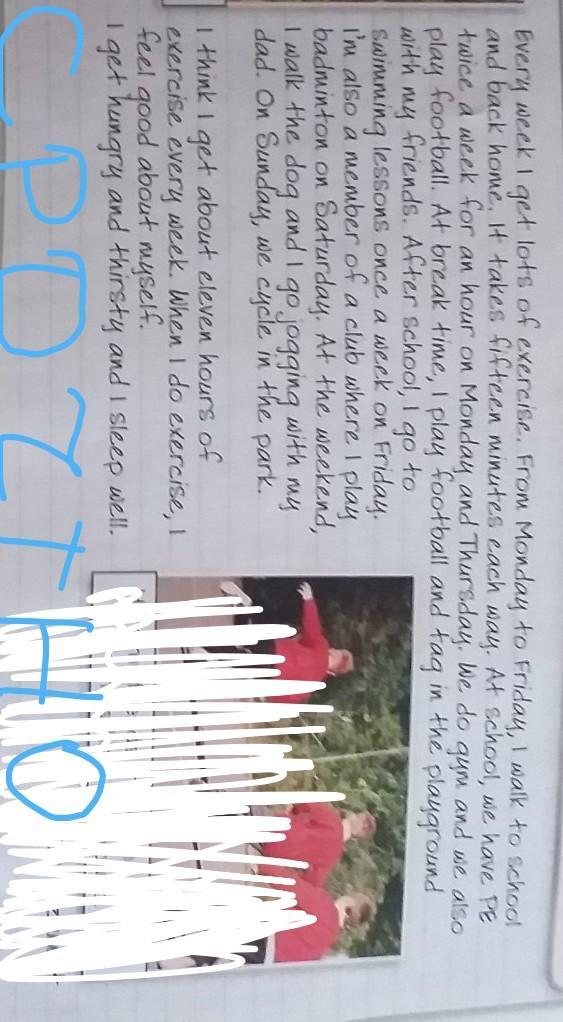 Every week I get lots of exercise. From Monday to Friday, I walk to school
and back home. It takes fifteen minutes each way. At school, we have PE
twice a week for an hour on Monday and Thursday. We do gym and we also
play football. At break time, I play football and tag in the playground
with my friends. After school, I go to
swimming lessons once a week on Friday.
I'm also a member of a club where I play
badminton on Saturday. At the weekend,
I walk the dog and I go jogging with my
dad. On Sunday, we cycle in the park.
I think I get about eleven hours of
exercise every week. When I do exercise, I
feel good about myself.
I get hungry and thirsty and I sleep well.